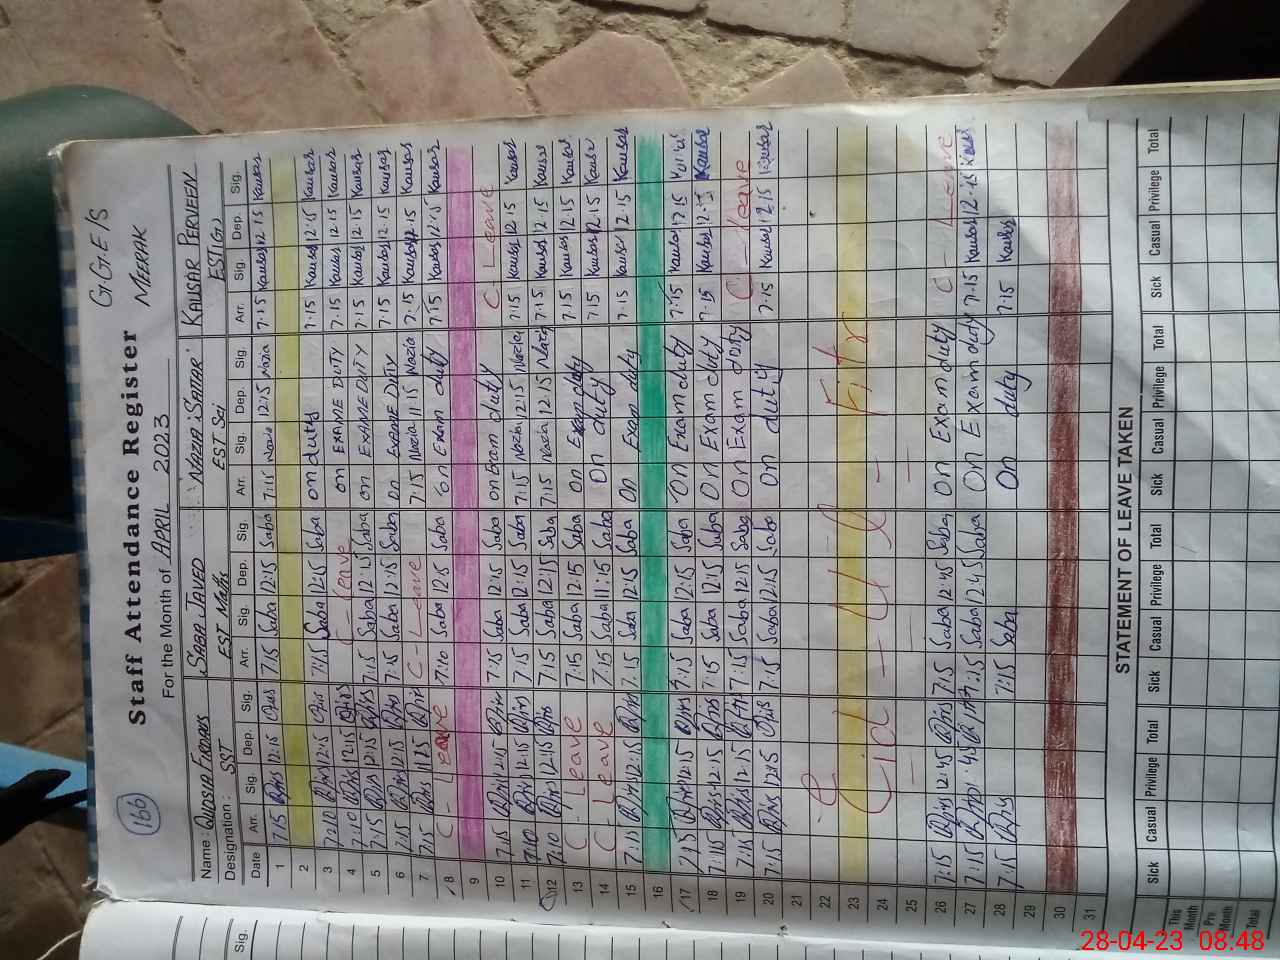 166
G.G.E/S
MEERAK
Staff Attendance Register
For the Month of APRIL 2023
Name: QUDSIA FIRDAUS SABA JAVED NAZIA SATTAR KAUSAR PERVEEN
Designation: SST EST Maths EST Sci EST(G)
Date Arr. Sig. Dep. Sig. Arr. Sig. Dep. Sig. Arr. Sig. Dep. Sig. Arr. Sig. Dep. Sig.
1 7:15 12:15 7:15 Saba 12:15 Saba 7:15 Nazia 12:15 Nazia 7:15 Kausar 12:15 Kausar
2
3 7:10 12:15 7:15 Saba 12:15 Saba on duty 7:15 Kausar 12:15 Kausar
4 7:10 12:15 C - Leave on EXAME DUTY 7:15 Kausar 12:15 Kausar
5 7:15 12:15 7:15 Saba 12:15 Saba on EXAME DUTY 7:15 Kausar 12:15 Kausar
6 7:15 12:15 7:15 Saba 12:15 Saba on EXAME DUTY 7:15 Kausar 12:15 Kausar
7 7:15 11:15 C - Leave 7:15 Nazia 11:15 Nazia 7:15 Kausar 12:15 Kausar
8 C - Leave 7:10 Saba 12:15 Saba on Exam duty 7:15 Kausar 12:15 Kausar
9
10 7:15 12:15 7:15 Saba 12:15 Saba on Exam duty C - Leave
11 7:10 12:15 7:15 Saba 12:15 Saba 7:15 Nazia 12:15 Nazia 7:15 Kausar 12:15 Kausar
12 7:10 12:15 7:15 Saba 12:15 Saba 7:15 Nazia 12:15 Nazia 7:15 Kausar 12:15 Kausar
13 C - Leave 7:15 Saba 12:15 Saba on Exam duty 7:15 Kausar 12:15 Kausar
14 C - Leave 7:15 Saba 11:15 Saba on duty 7:15 Kausar 12:15 Kausar
15 7:15 12:15 7:15 Saba 12:15 Saba on Exam duty 7:15 Kausar 12:15 Kausar
16
17 7:15 12:15 7:15 Saba 12:15 Saba on Exam duty 7:15 Kausar 12:15 Kausar
18 7:15 12:15 7:15 Saba 12:15 Saba on Exam duty 7:15 Kausar 12:15 Kausar
19 7:15 12:15 7:15 Saba 12:15 Saba on Exam duty C - leave
20 7:15 12:15 7:15 Saba 12:15 Saba on duty 7:15 Kausar 12:15 Kausar
21
22
23 Eid - Ul - Fitr
24
25
26 7:15 12:45 7:15 Saba 12:45 Saba on Exam duty C - Leave
27 7:15 7:15 Saba 12:45 Saba on Exam duty 7:15 Kausar 12:15 Kausar
28 7:15 7:15 Saba on duty 7:15 Kausar
29
30
31
STATEMENT OF LEAVE TAKEN
Sick Casual Privilege Total Sick Casual Privilege Total Sick Casual Privilege Total Sick Casual Privilege Total
This Month
Pre. Month
Total
Sig.
28-04-23 08:48